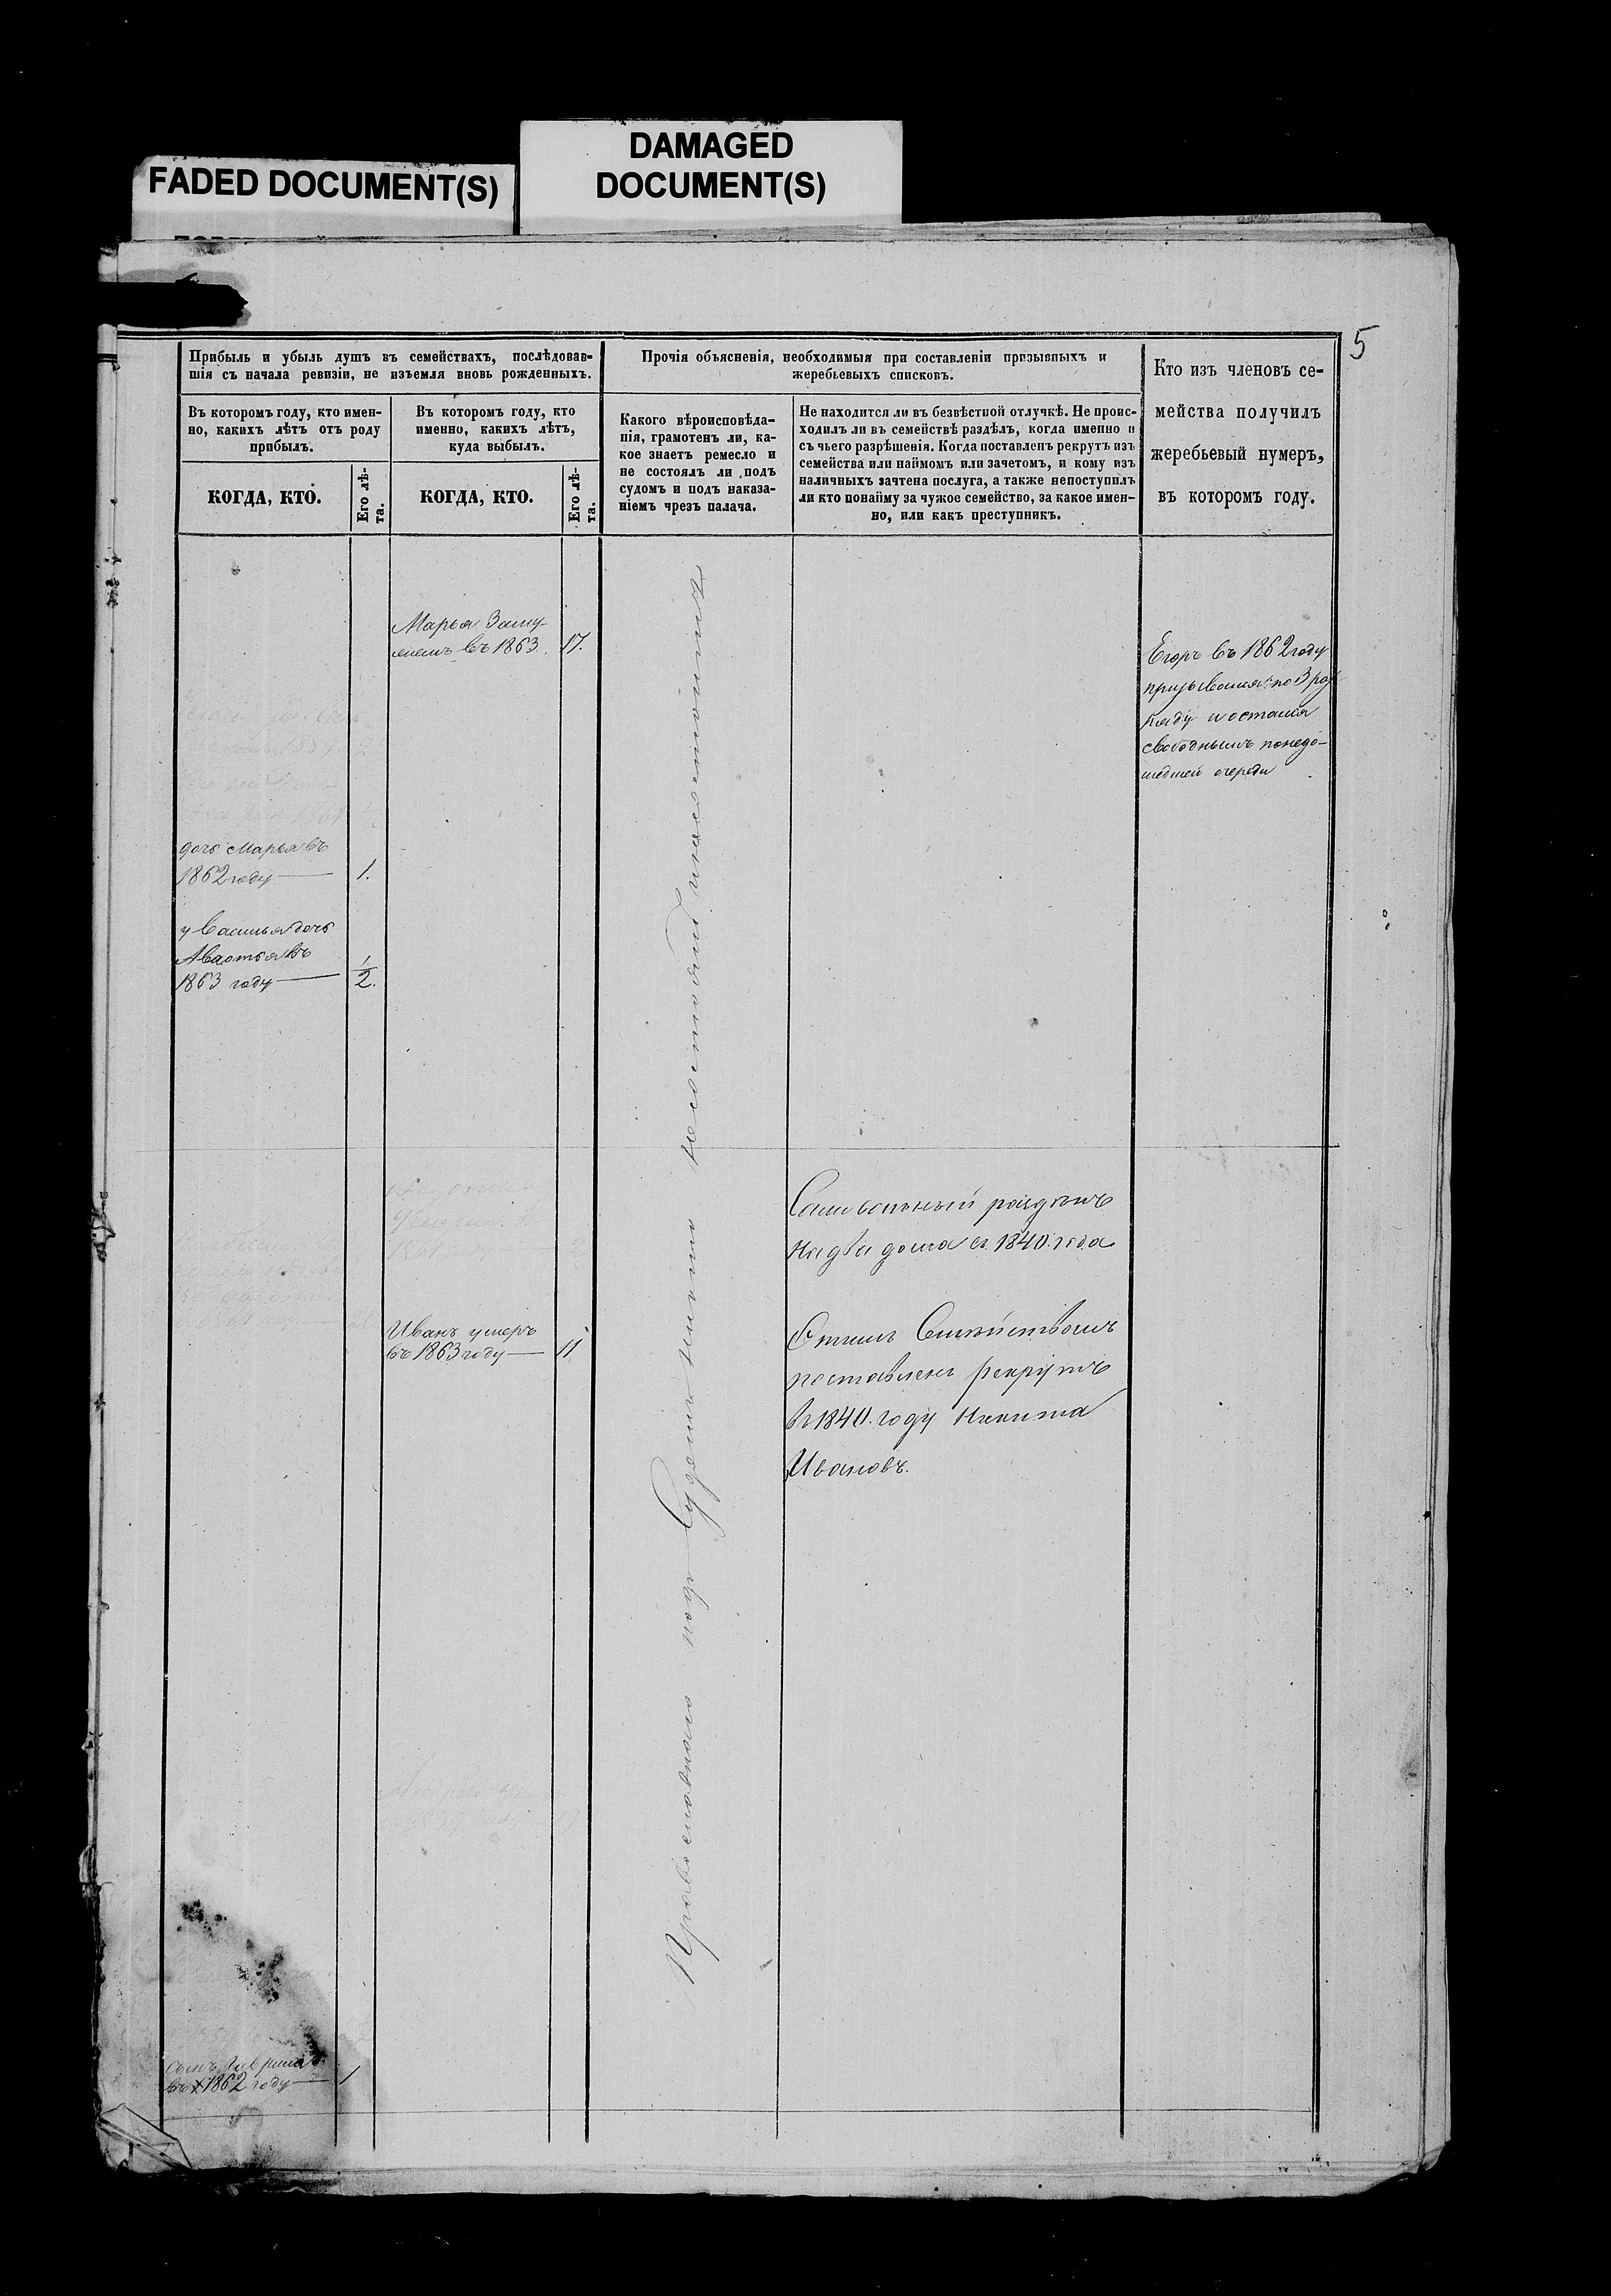 FADED DOCUMENT(S)
DAMAGED
DOCUMENT(S)
5
Прибыль и убыль душъ въ семействахъ, послѣдовав-
шія съ начала ревизіи, не изъемля вновь рожденныхъ.
Прочія объясненія, необходимыя при составленіи призывныхъ и
жеребьевыхъ списковъ.
Кто изъ членовъ се-
мейства получилъ
жеребьевый нумеръ,
въ которомъ году.
Въ которомъ году, кто имен-
но, какихъ лѣтъ отъ роду
прибылъ.
Въ которомъ году, кто
именно, какихъ лѣтъ,
куда выбылъ.
Какого вѣроисповѣда-
нія, грамотенъ ли, ка-
кое знаетъ ремесло и
не состоялъ ли подъ
судомъ и подъ наказа-
ніемъ чрезъ палача.
Не находится ли въ безвѣстной отлучкѣ. Не проис-
ходилъ ли въ семействѣ раздѣлъ, когда именно и
съ чьего разрѣшенія. Когда поставленъ рекрутъ изъ
семейства или наймомъ или зачетомъ, и кому изъ
наличныхъ зачтена послуга, а также непоступилъ
ли кто понайму за чужое семейство, за какое имен-
но, или какъ преступникъ.
КОГДА, КТО.
Его лѣ-
та.
КОГДА, КТО.
Его лѣ-
та.
Марья Заму-
жемъ въ 1863. 17.
Егоръ въ 1862 году
призывался по 3 раз
ряду и остался
свободнымъ понедо-
шедшей очереди
дочь Марья въ
1862 году — 1.
у Василья дочь
въ
1863 году — 1/2.
Православнаго подъ Судомъ никто несостоялъ и несостоитъ
Самовольный раздѣлъ
на два дома съ 1840. года
Симъ Семействомъ
поставленъ рекрутъ
въ 1840. году Никита
Ивановъ.
Иванъ умеръ
въ 1863 году — 11
сынъ Гаврила
въ 1862 году — 1